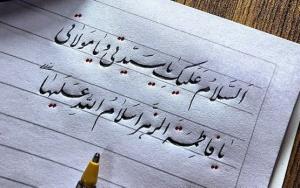 السلام علیک یا سیدتی و یا مولاتی
یا فاطمة الزهرا سلام الله علیها